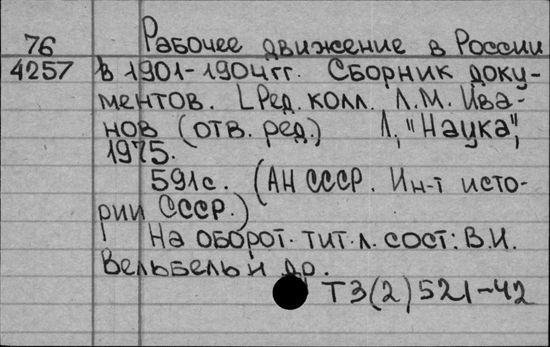 76 Рабочее движение в России
4257 в 1901-1904гг. Сборник доку-
ментов. [Ред. колл. Л.М. Ива-
нов (отв. ред.) Л., "Наука",
1975.
591с. (АН СССР. Ин-т исто-
рии СССР.)
На оборот. тит. л. сост: В.И.
Вельбель и др.
Т3(2)521-42